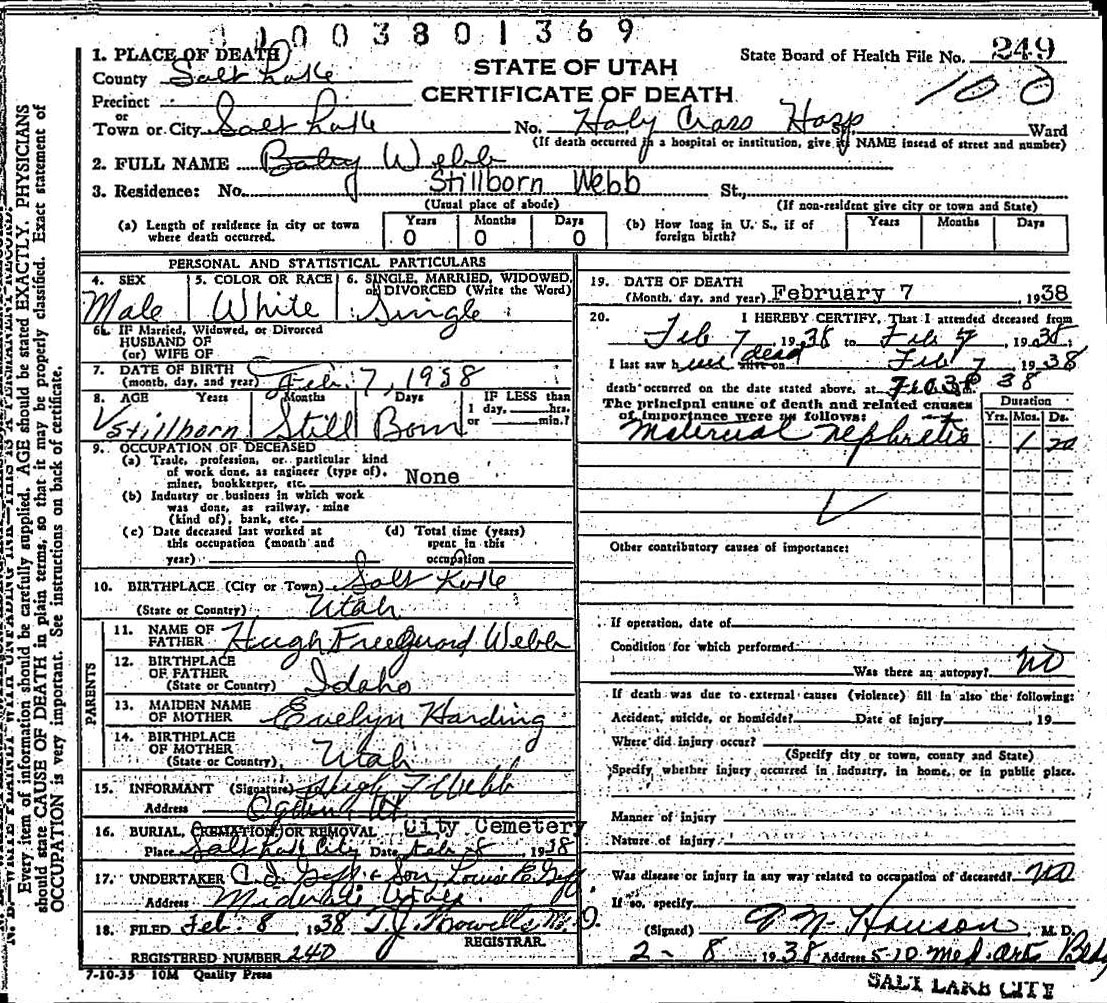 1003801369
1. PLACE OF DEATH
County Salt Lake
STATE OF UTAH
State Board of Health File No. 249
100
Precinct
CERTIFICATE OF DEATH
or
Town or City Salt Lake No. Holy Cross Hosp St., Ward
(If death occurred in a hospital or institution, give its NAME insead of street and number)
2. FULL NAME Baby Webb
3. Residence: No. Stillborn Webb St.,
(Usual place of abode) (If non-resident give city or town and State)
(a) Length of residence in city or town where death occurred. Years 0 Months 0 Days 0
(b) How long in U. S., if of foreign birth? Years Months Days
PERSONAL AND STATISTICAL PARTICULARS
4. SEX Male
5. COLOR OR RACE White
6. SINGLE, MARRIED, WIDOWED, or DIVORCED (Write the Word) Single
IF Married, Widowed, or Divorced
HUSBAND OF
(or) WIFE OF
7. DATE OF BIRTH
(month, day, and year) Feb. 7, 1938
8. AGE Years Months Days IF LESS than
1 day, hrs.
or min.?
Stillborn Still Born
9. OCCUPATION OF DECEASED
(a) Trade, profession, or particular kind
of work done, as engineer (type of),
miner, bookkeeper, etc. None
(b) Industry or business in which work
was done, as railway, mine
(kind of), bank, etc.
(c) Date deceased last worked at
this occupation (month and
year)
(d) Total time (years)
spent in this
occupation
10. BIRTHPLACE (City or Town) Salt Lake
(State or Country) Utah
PARENTS
11. NAME OF
FATHER Hugh Webb
12. BIRTHPLACE
OF FATHER
(State or Country) Idaho
13. MAIDEN NAME
OF MOTHER Evelyn Harding
14. BIRTHPLACE
OF MOTHER
(State or Country) Utah
15. INFORMANT (Signature) Hugh F Webb
Address Ogden Ut
16. BURIAL, CREMATION OR REMOVAL City Cemetery
Place Salt Lake City Date Feb 8, 1938
17. UNDERTAKER & Son
Address Utah
18. FILED Feb. 8 1938 M. D.
REGISTRAR.
REGISTERED NUMBER 240
7-10-35 10M Quality Press
19. DATE OF DEATH
(Month, day, and year) February 7, 1938
20. I HEREBY CERTIFY, That I attended deceased from
Feb 7, 1938 to Feb 7, 1938
I last saw h alive on dead Feb 7, 1938
death occurred on the date stated above, at
The principal cause of death and related causes
of importance were as follows: Duration
Yrs. Mos. Ds.
Maternal nephritis 1 20
Other contributory causes of importance:
If operation, date of
Condition for which performed
Was there an autopsy? NO
If death was due to external causes (violence) fill in also the following:
Accident, suicide, or homicide? Date of injury , 19
Where did injury occur?
(Specify city or town, county and State)
Specify whether injury occurred in industry, in home, or in public place.
Manner of injury
Nature of injury
Was disease or injury in any way related to occupation of deceased? NO
If so, specify
(Signed) M. D.
2 - 8 1938 Address 510 Med. Arts Bldg
SALT LAKE CITY
Every item of information should be carefully supplied. AGE should be stated EXACTLY. PHYSICIANS
should state CAUSE OF DEATH in plain terms, so that it may be properly classified. Exact statement of
OCCUPATION is very important. See instructions on back of certificate.